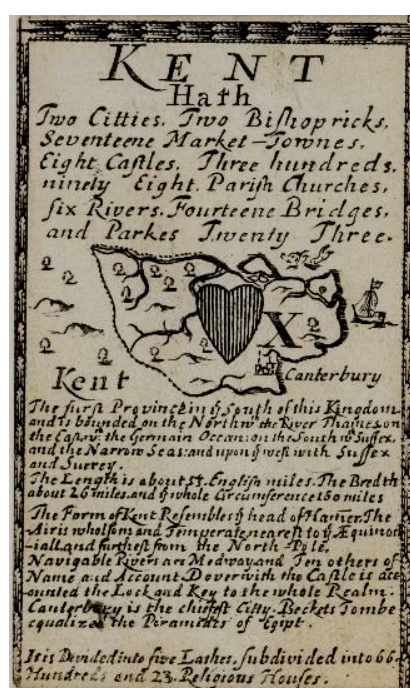 KENT
Hath
Two Citties. Two Biſhopricks.
Seventeene Market-Townes.
Eight Caſtles. Three hundreds.
ninety Eight. Pariſh Churches.
ſix Rivers. Fourteene Bridges.
and Parkes Twenty Three.
X
Kent
Canterbury
The furſt Province in ÿ South of this Kingdom
and is bounded on the North wth the River Thames, on
the Eaſt wth the Germain Ocean: on the South wth Suſſex,
and the Narrow Seas: and upon ÿ weſt with Suſſex
and Surrey.
The Length is about 54. Engliſh miles. The Bredth
about 26 miles. and ÿ whole Circumference 160 miles
The Form of Kent Reſembles ÿ head of Ham̄er. The
Air is wholſom and Temperate, neareſt to ÿ Æquinoc-
-iall, and furtheſt from the North-Pole.
Navigable Rivers are Medway and Ten others of
Name and Account. Dover with the Caſtle is acc
ounted the Lock and Key to the whole Realm.
Canterbury is the chiefeſt Citty. Beckets Tombe
equalized the Piramides of Egipt.
It is Divided into five Lathes, ſubdivided into 66.
Hundreds and 23. Religious Houſes.